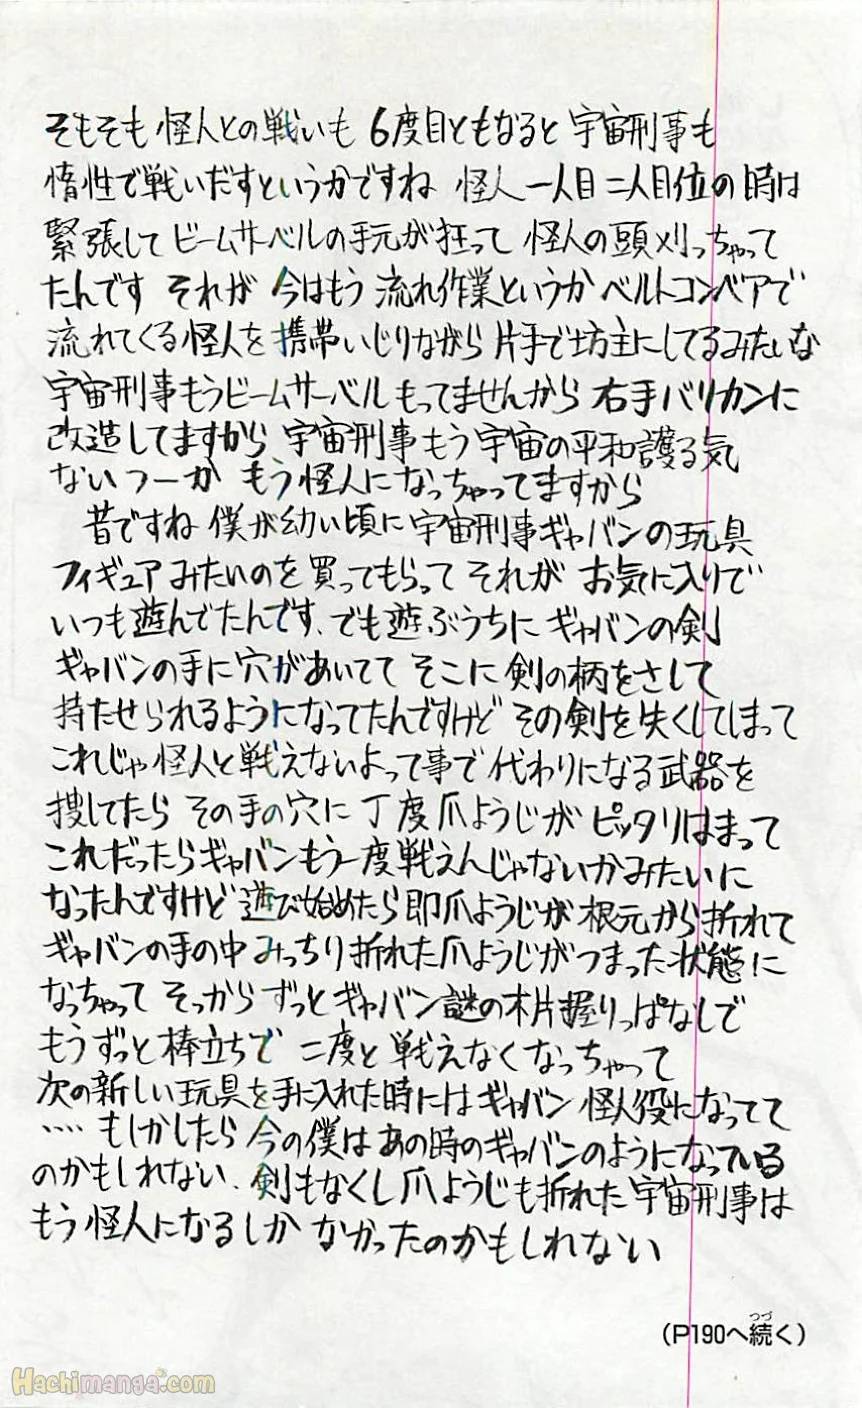 そもそも怪人との戦いも 6度目ともなると 宇宙刑事も
惰性で戦いだすというかですね 怪人一人目二人目位の時は
緊張してビームサーベルの手元が狂って 怪人の頭刈っちゃって
たんです それが 今はもう 流れ作業というか ベルトコンベアで
流れてくる怪人を 携帯いじりながら 片手で坊主にしてるみたいな
宇宙刑事もうビームサーベル もってませんから 右手バリカンに
改造してますから 宇宙刑事もう宇宙の平和護る気
ないつーか もう怪人になっちゃってますから
昔ですね 僕が幼い頃に 宇宙刑事ギャバンの玩具
フィギュアみたいのを買ってもらって それが お気に入りで
いつも遊んでたんです、でも遊ぶうちに ギャバンの剣
ギャバンの手に穴があいてて そこに剣の柄をさして
持たせられるようになってたんですけど その剣を失くしてしまって
これじゃ怪人と戦えないよって事で代わりになる武器を
捜してたら その手の穴に 丁度爪ようじが ピッタリはまって
これだったらギャバンもう一度戦えんじゃないかみたいに
なったんですけど 遊び始めたら即爪ようじが根元から折れて
ギャバンの手の中 みっちり折れた爪ようじがつまった状態に
なっちゃって そっからずっとギャバン謎の木片握りっぱなしで
もうずっと棒立ちで 二度と戦えなくなっちゃって
次の新しい玩具を手に入れた時にはギャバン 怪人役になってて
‥‥ もしかしたら今の僕はあの時のギャバンのようになっている
のかもしれない、剣もなくし爪ようじも折れた宇宙刑事は
もう怪人になるしか なかったのかもしれない
(P190へ続く)
つづ
Hachimanga.com